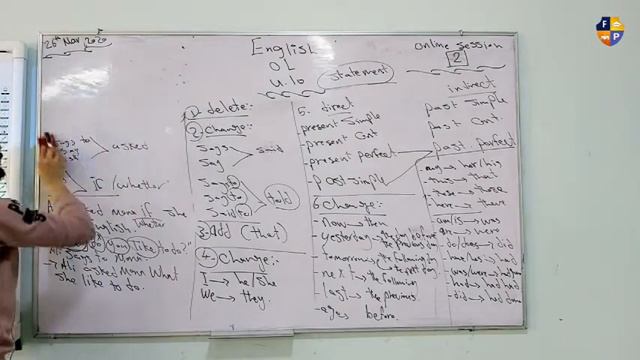 26th Nov 2020
English
OL
U.10
statement
online session
2
says to
asked
if / whether
if she
English whether
do you like to do?"
says to Mona
Ali asked Mona what
she like to do.
1- delete:
2 change:
says
say
said
say to
says to
said to
told
3. Add (that)
4. change:
I → he/she
We → they.
5. direct
- present simple
- present cont
- present perfect
- past simple
6 change:
- now → then
- yesterday → the day before
the previous day
- tomorrow → the following day
the next day
- next → the following
- last → the previous
- ago → before
indirect
past simple
past cont.
past perfect
- my → her/his
- this → that
- these → those
- here → there
- am/is → was
- are → were
- do/does → did
- has → had
- was/were → had been
- had → had had
- did → had done
F
P